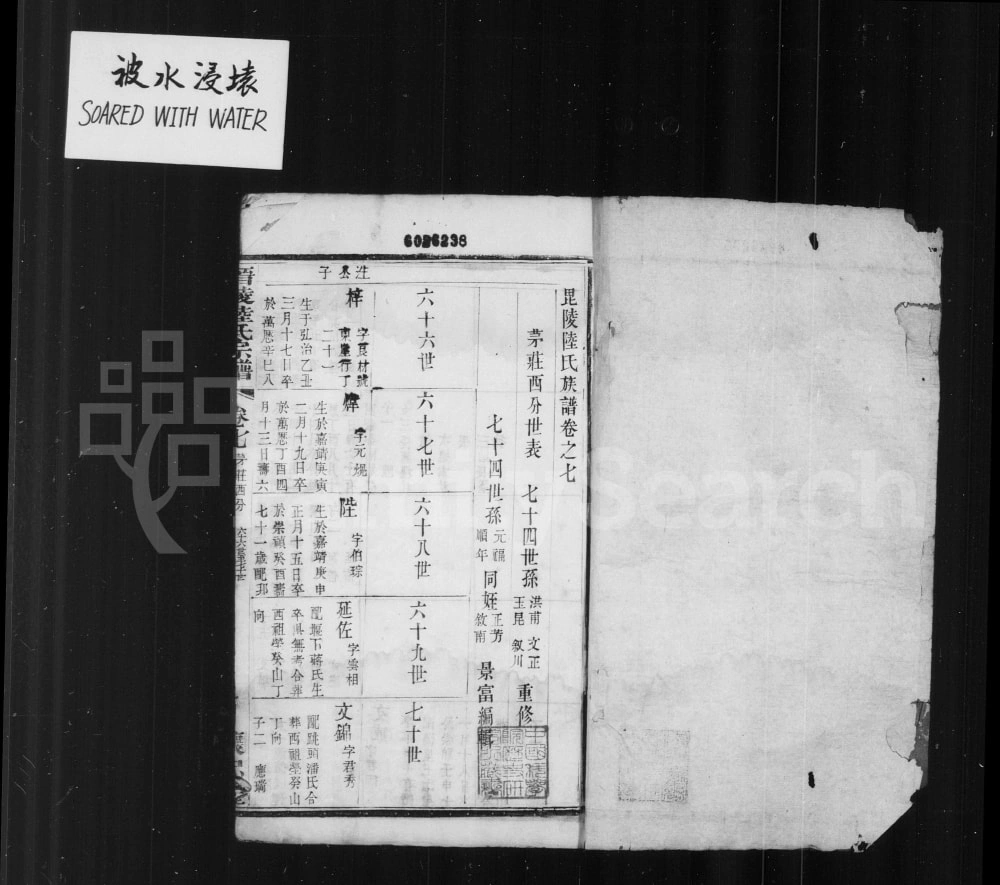 被水浸壞
SOARED WITH WATER
6026238
毘陵陸氏族譜卷之七
茅莊西分世表 七十四世孫 洪甫 文正 玉昆 叙川 重修
七十四世孫 元福 順年 同姪 正芳 敘南 景富編輯
六十六世
六十七世
六十八世
六十九世
七十世
公子
梓 字良材號
行丁
二十一
生于弘治乙丑
三月十七日卒
於萬厯辛巳八
月十三日壽六
字元
生於嘉靖庚寅
二月十九日卒
於萬厯丁酉四
陞 字伯琮
生於嘉靖庚申
正月十五日卒
於崇禎癸酉壽
七十一歲配邵
延佐 字雲相
配堰下蔣氏生
卒俱無考合葬
西祖塋癸山丁
向
文錦 字君秀
配跳頭潘氏合
葬西祖塋癸山
丁向
子二 應
晋陵陸氏宗譜
卷七
茅莊西分
Search